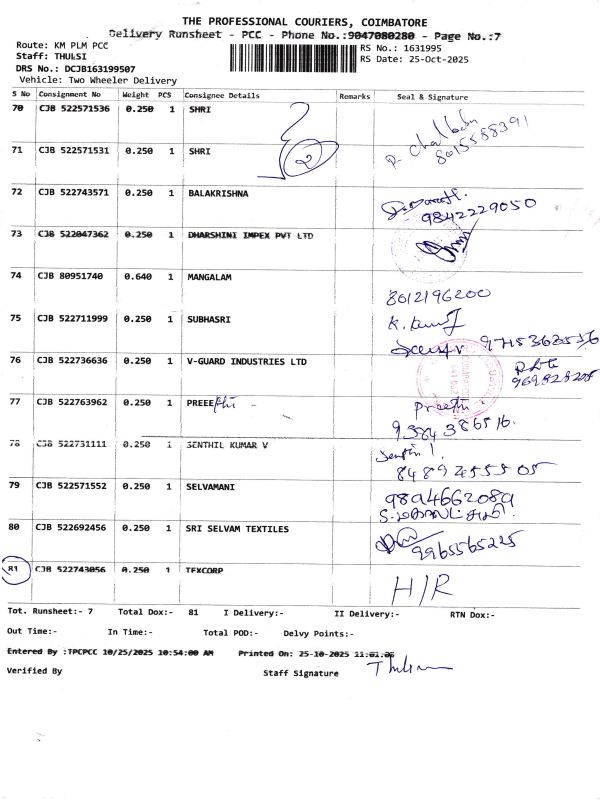 THE PROFESSIONAL COURIERS, COIMBATORE
Delivery Runsheet - PCC - Phone No.:9047080280 - Page No.:7
Route: KM PLM PCC
RS No.: 1631995
Staff: THULSI
RS Date: 25-Oct-2025
DRS No.: DCJB163199507
Vehicle: Two Wheeler Delivery
S No Consignment No Weight PCS Consignee Details Remarks Seal & Signature
70 CJB 522571536 0.250 1 SHRI
8015588391
71 CJB 522571531 0.250 1 SHRI
2
72 CJB 522743571 0.250 1 BALAKRISHNA
9842229050
73 CJB 522047362 0.250 1 DHARSHINI IMPEX PVT LTD
74 CJB 80951740 0.640 1 MANGALAM
8012196200
75 CJB 522711999 0.250 1 SUBHASRI
76 CJB 522736636 0.250 1 V-GUARD INDUSTRIES LTD
77 CJB 522763962 0.250 1 PREEE
Preethi
9384386516.
78 CJB 522731111 0.250 1 SENTHIL KUMAR V
79 CJB 522571552 0.250 1 SELVAMANI
9894662089
80 CJB 522692456 0.250 1 SRI SELVAM TEXTILES
9965565225
R1 CJB 522743056 0.250 1 TEXCORP
H/R
Tot. Runsheet:- 7 Total Dox:- 81 I Delivery:- II Delivery:- RTN Dox:-
Out Time:- In Time:- Total POD:- Delvy Points:-
Entered By :TPCPCC 10/25/2025 10:54:00 AM Printed On: 25-10-2025
Verified By Staff Signature